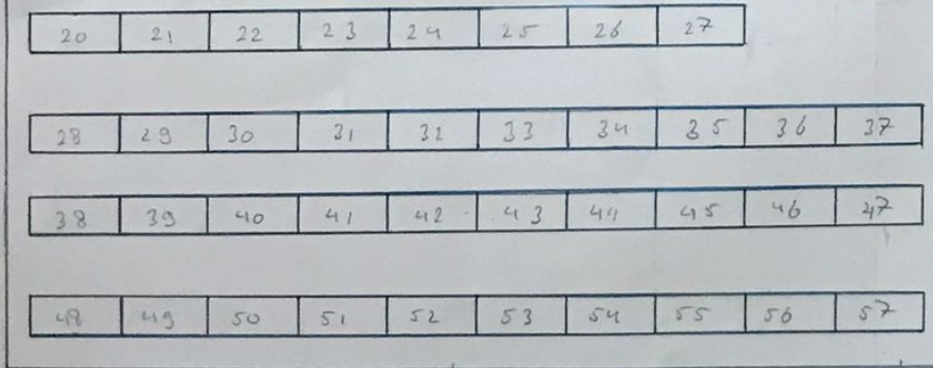 20 21 22 23 24 25 26 27
28 29 30 31 32 33 34 35 36 37
38 39 40 41 42 43 44 45 46 47
48 49 50 51 52 53 54 55 56 57